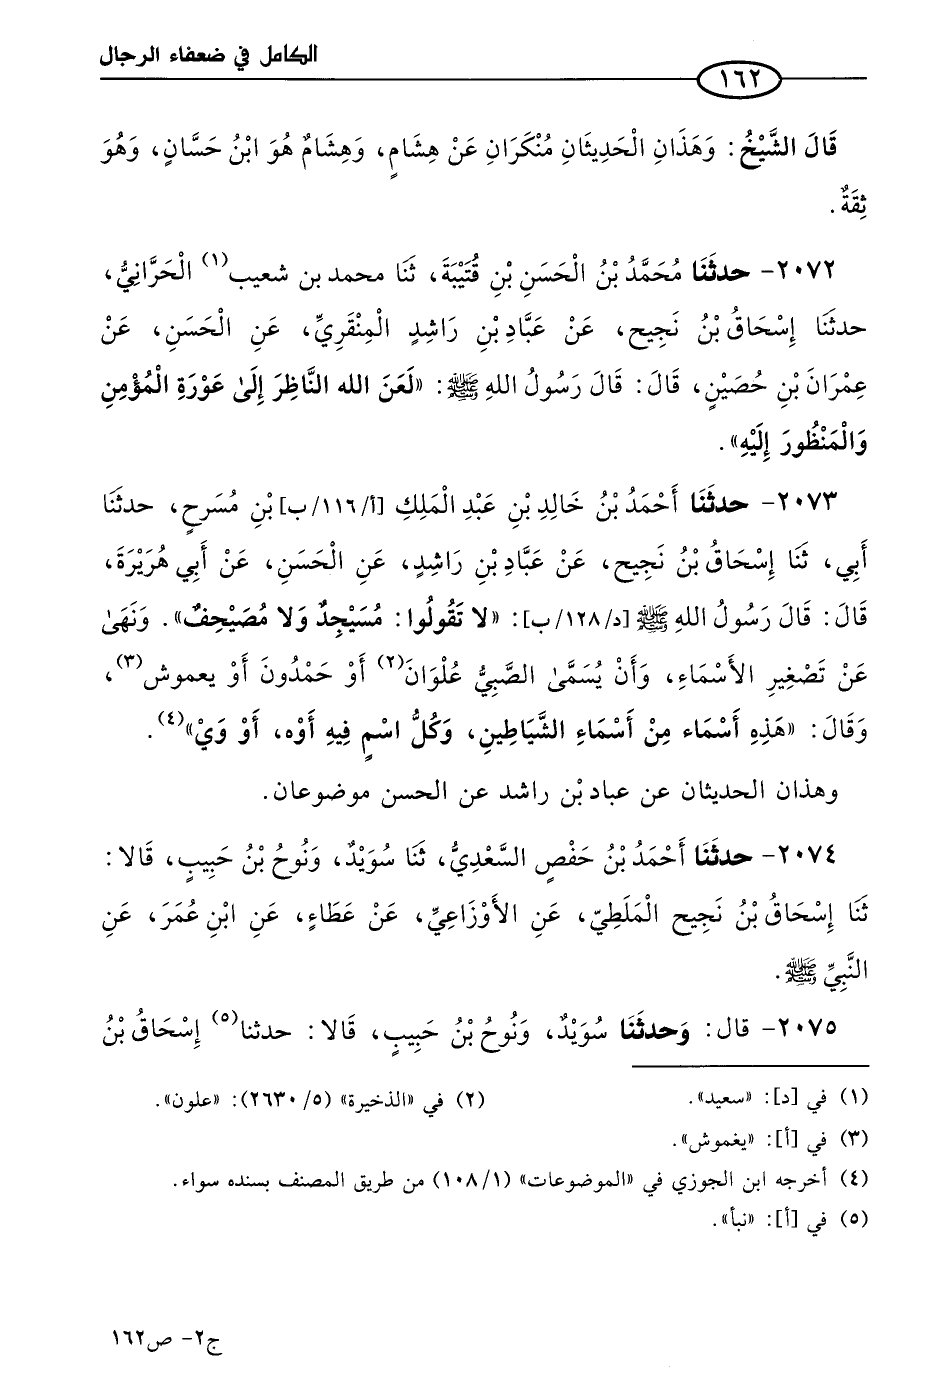 الكامل في ضعفاء الرجال
١٦٢
قَالَ الشَّيْخُ: وَهَذَانِ الْحَدِيثَانِ مُنْكَرَانِ عَنْ هِشَامٍ، وَهِشَامٌ هُوَ ابْنُ حَسَّانٍ، وَهُوَ
ثِقَةٌ.
٢٠٧٢- حدثَنَا مُحَمَّدُ بْنُ الْحَسَنِ بْنِ قُتَيْبَةَ، ثَنَا محمد بن شعيب(١) الْحَرَّانِيُّ،
حدثَنَا إِسْحَاقُ بْنُ نَجِيح، عَنْ عَبَّادِ بْنِ رَاشِدٍ الْمِنْقَرِيِّ، عَنِ الْحَسَنِ، عَنْ
عِمْرَانَ بْنِ حُصَيْنٍ، قَالَ: قَالَ رَسُولُ اللهِ ﷺ: «لَعَنَ الله النَّاظِرَ إِلَىٰ عَوْرَةِ الْمُؤْمِنِ
وَالْمَنْظُورَ إِلَيْهِ».
٢٠٧٣- حدثَنَا أَحْمَدُ بْنُ خَالِدِ بْنِ عَبْدِ الْمَلِكِ [أ/١١٦/ب] بْنِ مُسَرحٍ، حدثَنَا
أَبِي، ثَنَا إِسْحَاقُ بْنُ نَجِيح، عَنْ عَبَّادِ بْنِ رَاشِدٍ، عَنِ الْحَسَنِ، عَنْ أَبِي هُرَيْرَةَ،
قَالَ: قَالَ رَسُولُ اللهِ ﷺ [د/١٢٨/ب]: «لا تَقُولُوا: مُسَيْجِدٌ وَلا مُصَيْحِفٌ». وَنَهَىٰ
عَنْ تَصْغِيرِ الأَسْمَاءِ، وَأَنْ يُسَمَّىٰ الصَّبِيُّ عُلْوَانَ(٢) أَوْ حَمْدُونَ أَوْ يعموش(٣)،
وَقَالَ: «هَذِهِ أَسْمَاء مِنْ أَسْمَاءِ الشَّيَاطِينِ، وَكُلُّ اسْمٍ فِيهِ أَوْه، أَوْ وَيْ»(٤).
وهذان الحديثان عن عباد بْن راشد عن الحسن موضوعان.
٢٠٧٤- حدثَنَا أَحْمَدُ بْنُ حَفْصٍ السَّعْدِيُّ، ثَنَا سُوَيْدٌ، وَنُوحُ بْنُ حَبِيبٍ، قَالا:
ثَنَا إِسْحَاقُ بْنُ نَجِيح الْمَلَطِيّ، عَنِ الأَوْزَاعِيِّ، عَنْ عَطَاءٍ، عَنِ ابْنِ عُمَرَ، عَنِ
النَّبِيِّ ﷺ.
٢٠٧٥- قال: وَحدثَنَا سُوَيْدٌ، وَنُوحُ بْنُ حَبِيبٍ، قَالا: حدثنا(٥) إِسْحَاقُ بْنُ
(١) في [د]: «سعيد». (٢) في «الذخيرة» (٥/ ٢٦٣٠): «علون».
(٣) في [أ]: «يغموش».
(٤) أخرجه ابن الجوزي في «الموضوعات» (١٠٨/١) من طريق المصنف بسنده سواء.
(٥) في [أ]: «نبأ».
ج٢- ص١٦٢